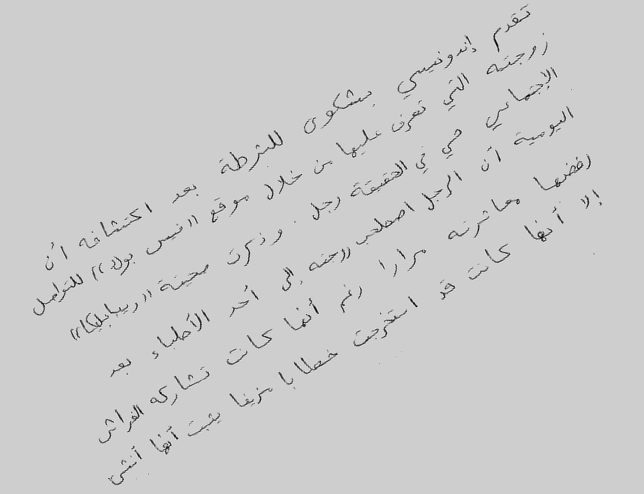 تقدم إندونيسي بشكوى للشرطة بعد اكتشافه أن
زوجته التي تعرف عليها من خلال موقع "فيس بوك" للتواصل
الإجتماعي هي في الحقيقة رجل . وذكرت صحيفة "ريبابليكا"
اليومية أن الرجل اصطحب زوجته إلى أحد الأطباء بعد
رفضها معاشرته مرارا رغم أنها كانت تشاركه الفراش
إلا أنها كانت قد استخرجت خطابا مزيفا يثبت أنها أنثى